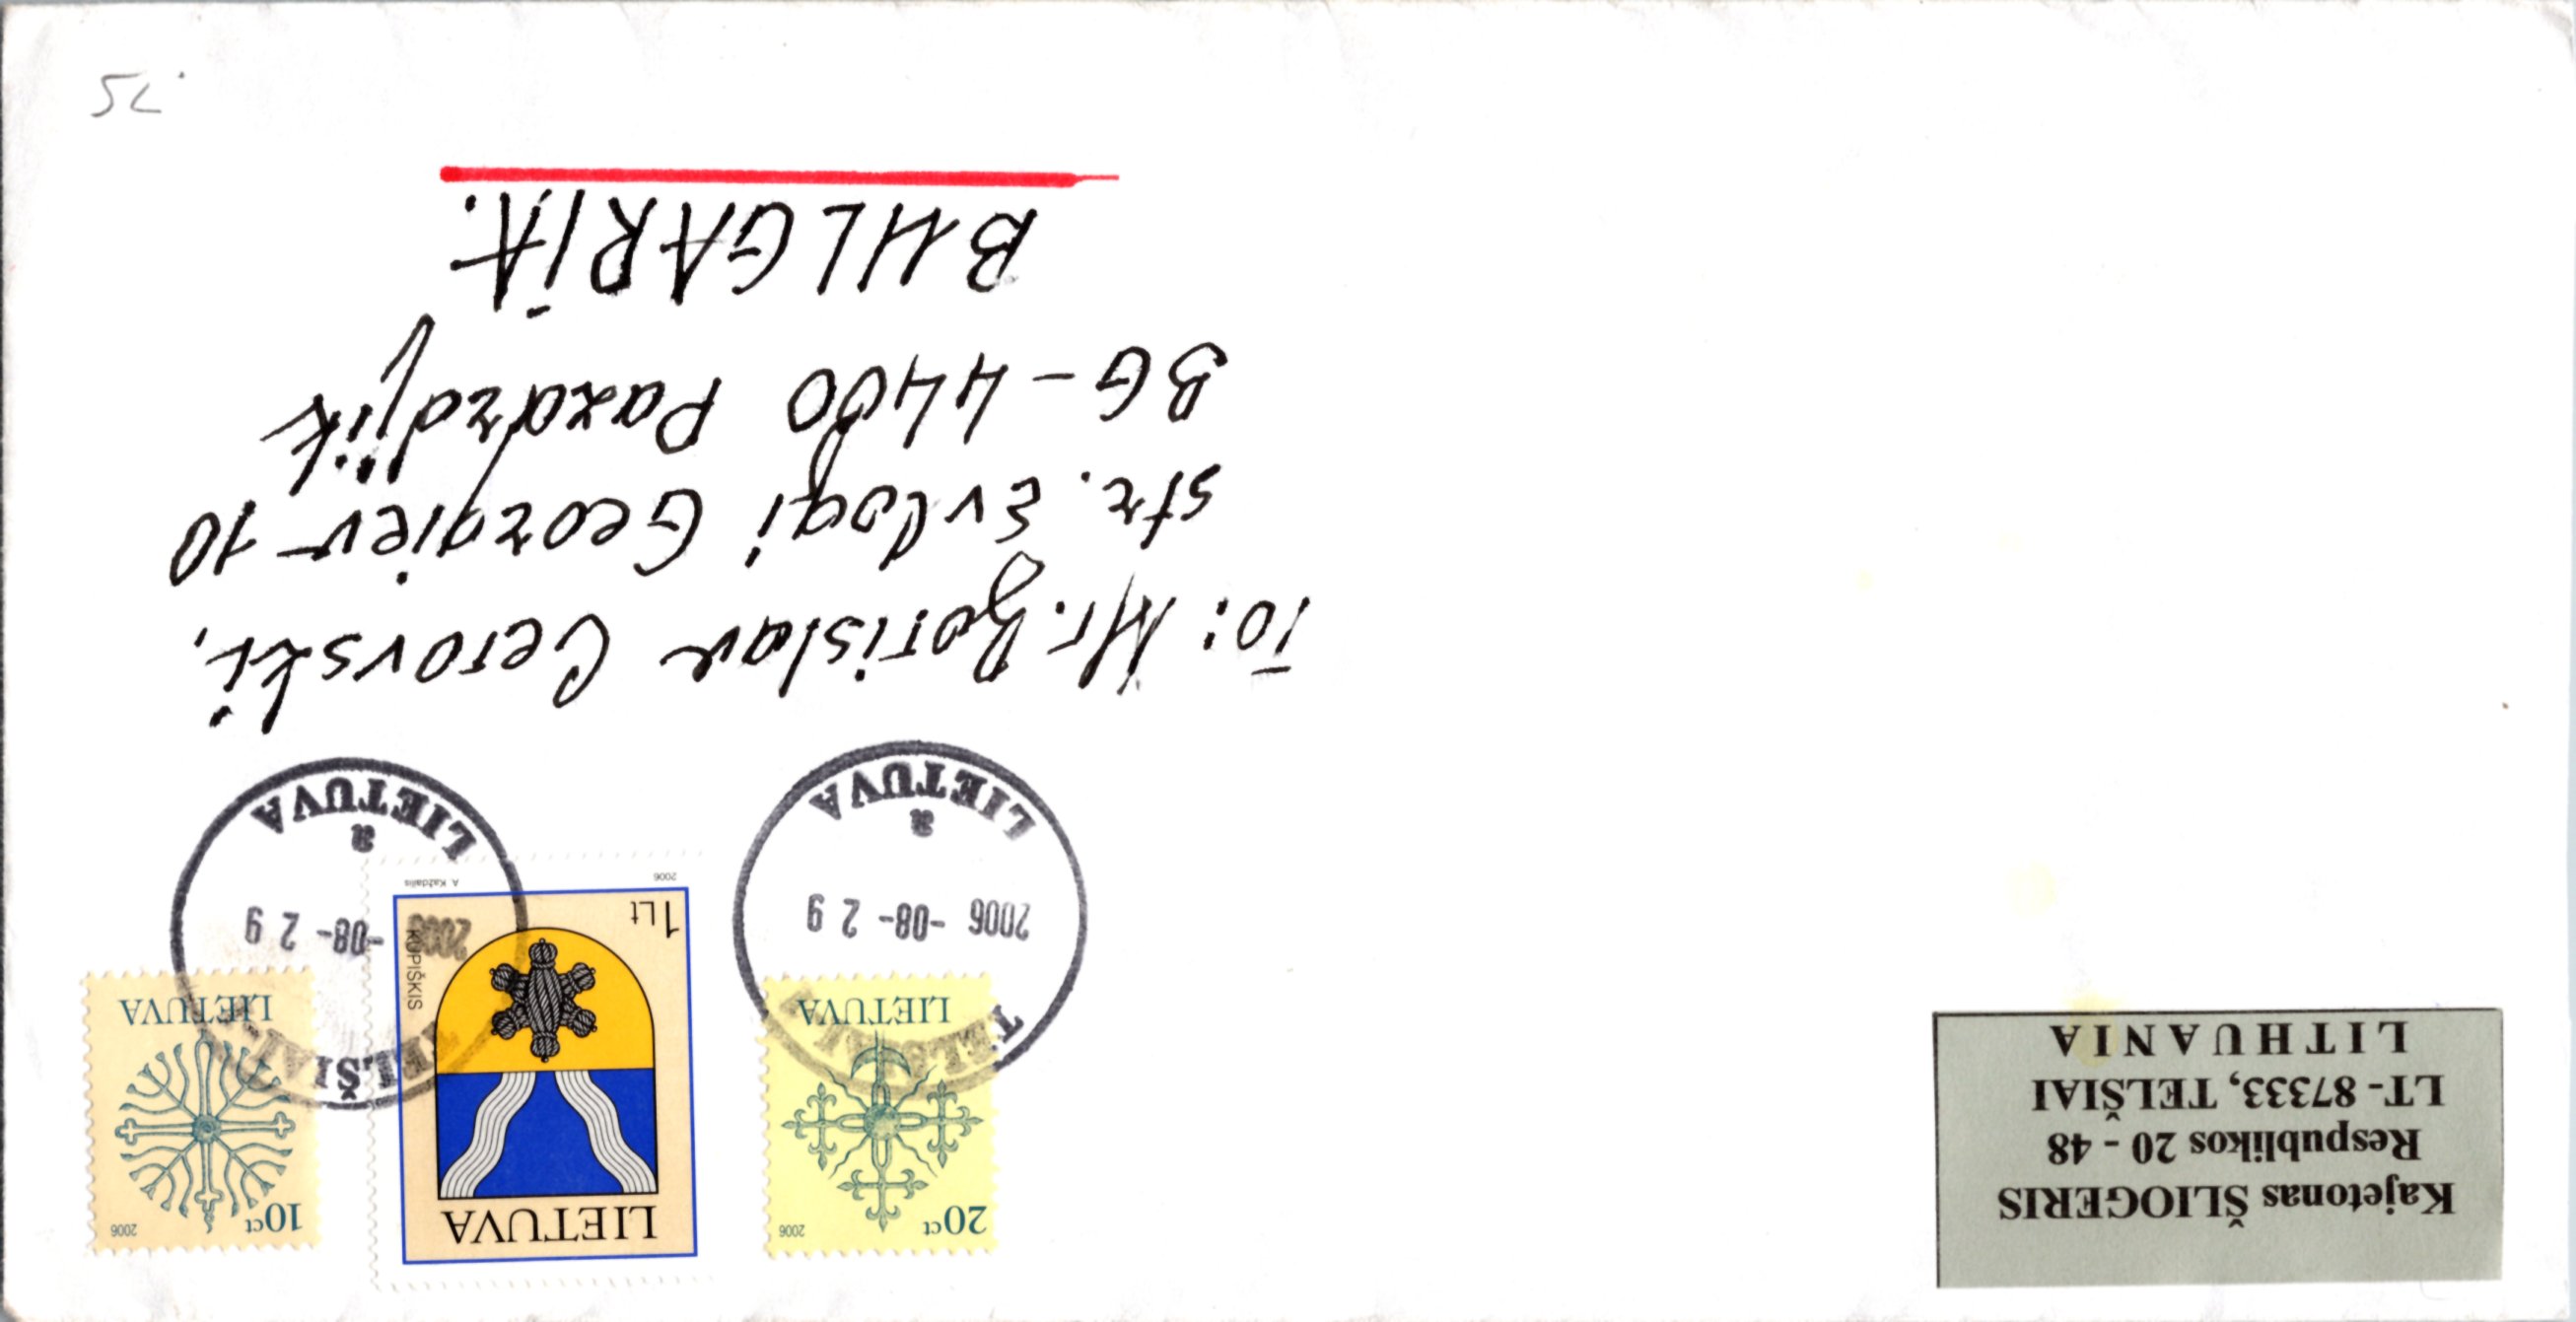 Kajetonas ŠLIOGERIS
Respublikos 20 - 48
LT - 87333, TELŠIAI
LITHUANIA
20ct
2006
LIETUVA
LIETUVA
1 Lt
KUPIŠKIS
2006
A. Každailis
10ct
2006
LIETUVA
TELŠIAI
2006 -08- 29
a
LIETUVA
TELŠIAI
2006 -08- 29
a
LIETUVA
To: Mr. Borislav Cerovski,
str. Evlogi Georgiev 10
BG - 4400 Pazardjik
BULGARIA.